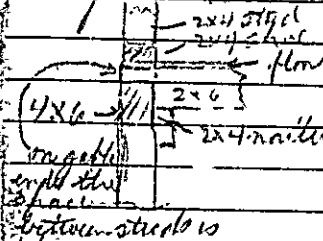 2x4 stud
2x4
floor
2x6
4x6
2x4 nailer
on gable
ends the
space
between studs is